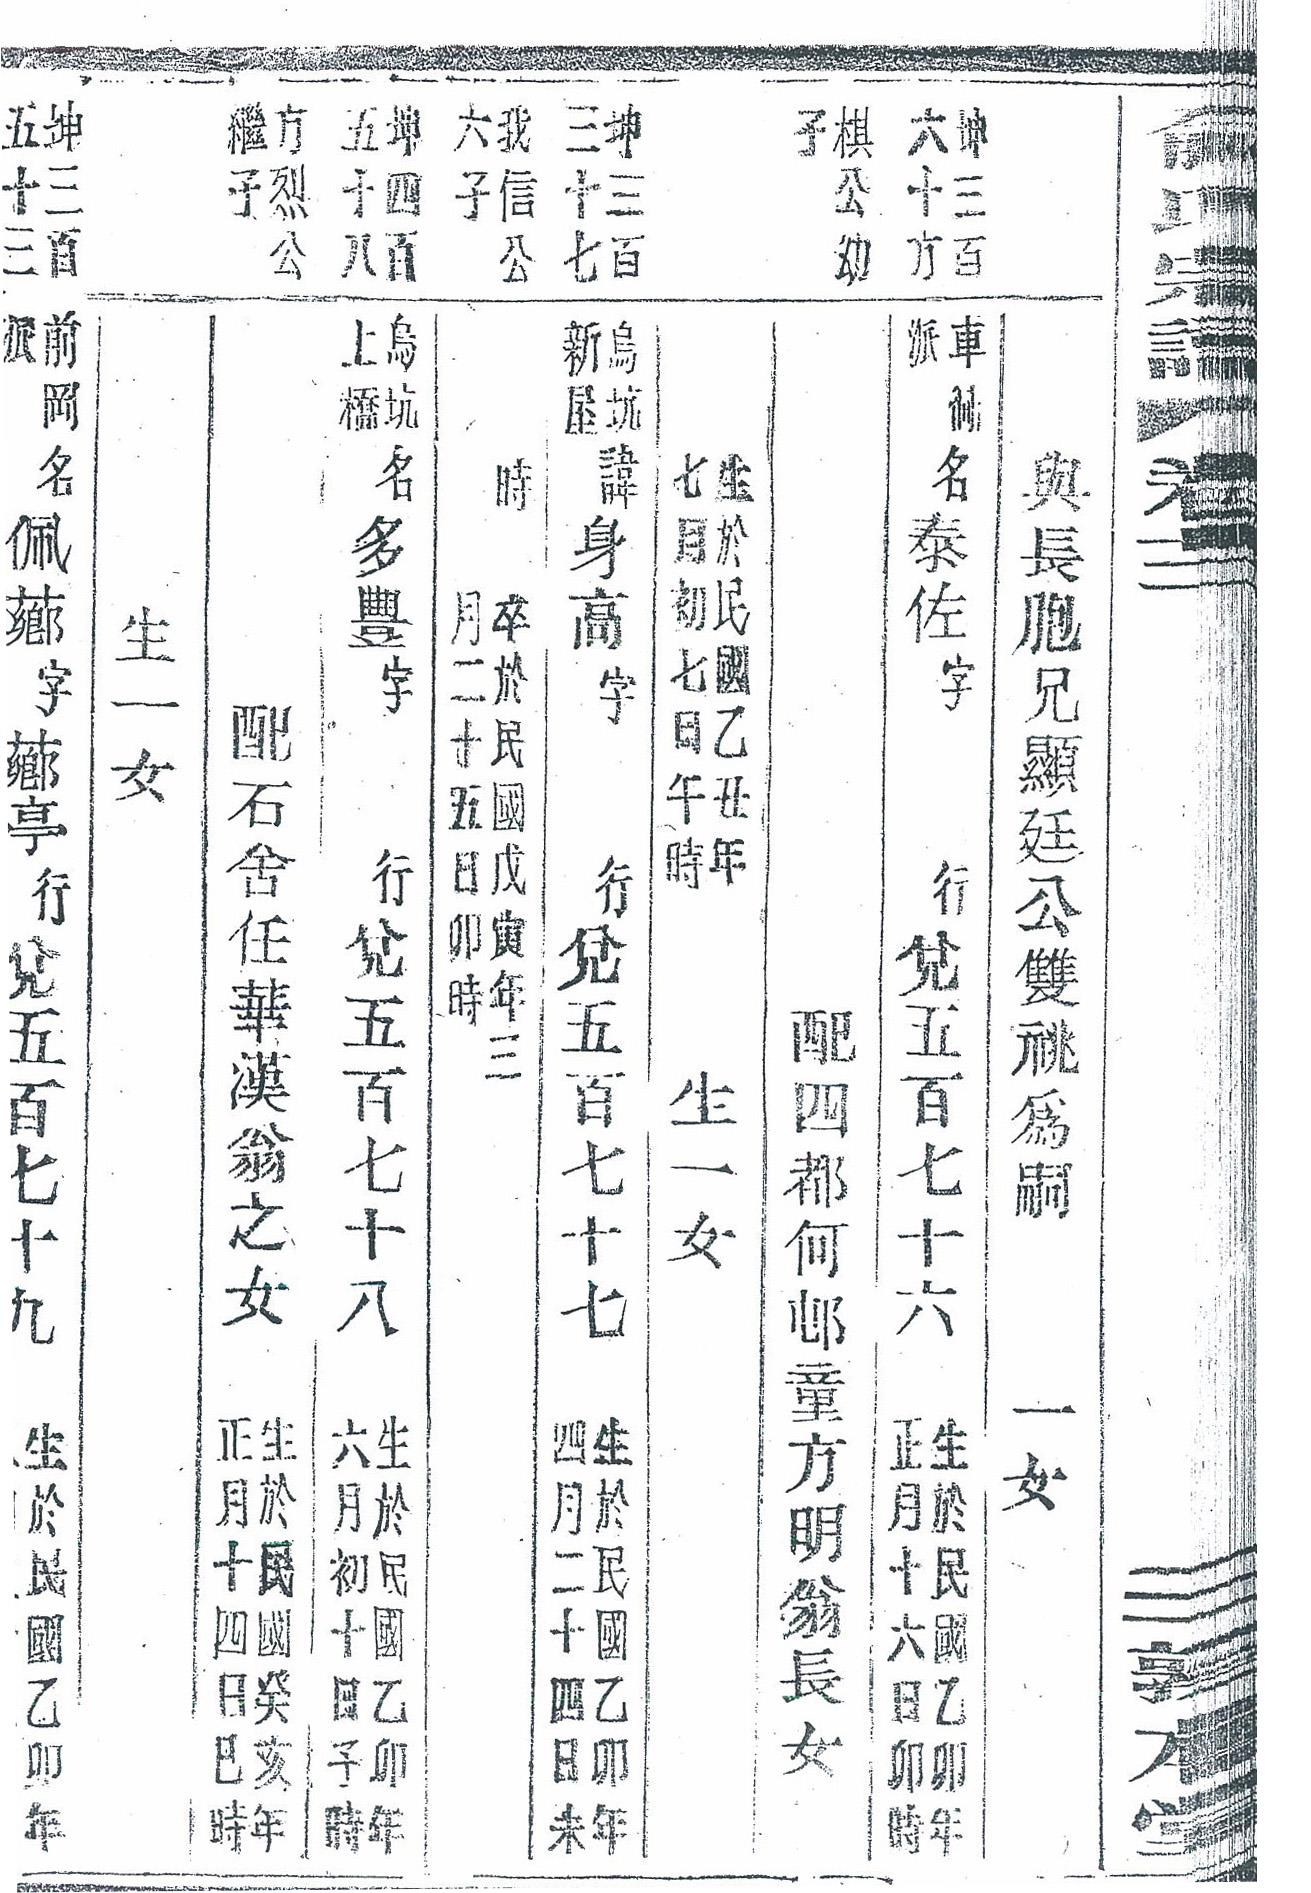 俞氏宗譜 卷二 三 敦本堂
與長胞兄顯廷公雙祧為嗣 一女
坤三百
六十方
棋公幼
子
車
派
名泰佐字 行兌五百七十六 生於民國乙卯年
正月十六日卯時
配四都何邨童方明翁長女
生於民國乙丑年
七月初七日午時
生一女
坤三百
三十七
我信公
六子
烏坑
新屋
諱身高字 行兌五百七十七 生於民國乙卯年
四月二十四日未
時 卒於民國戊寅年三
月二十五日卯時
坤四百
五十八
方烈公
繼子
烏坑
上橋
名多豐字 行兌五百七十八 生於民國乙卯年
六月初十日子時
配石舍任華漢翁之女 生於民國癸亥年
正月十四日巳時
生一女
坤三百
五十三
前岡
派
名佩薌字薌亭行兌五百七十九 生於民國乙卯年